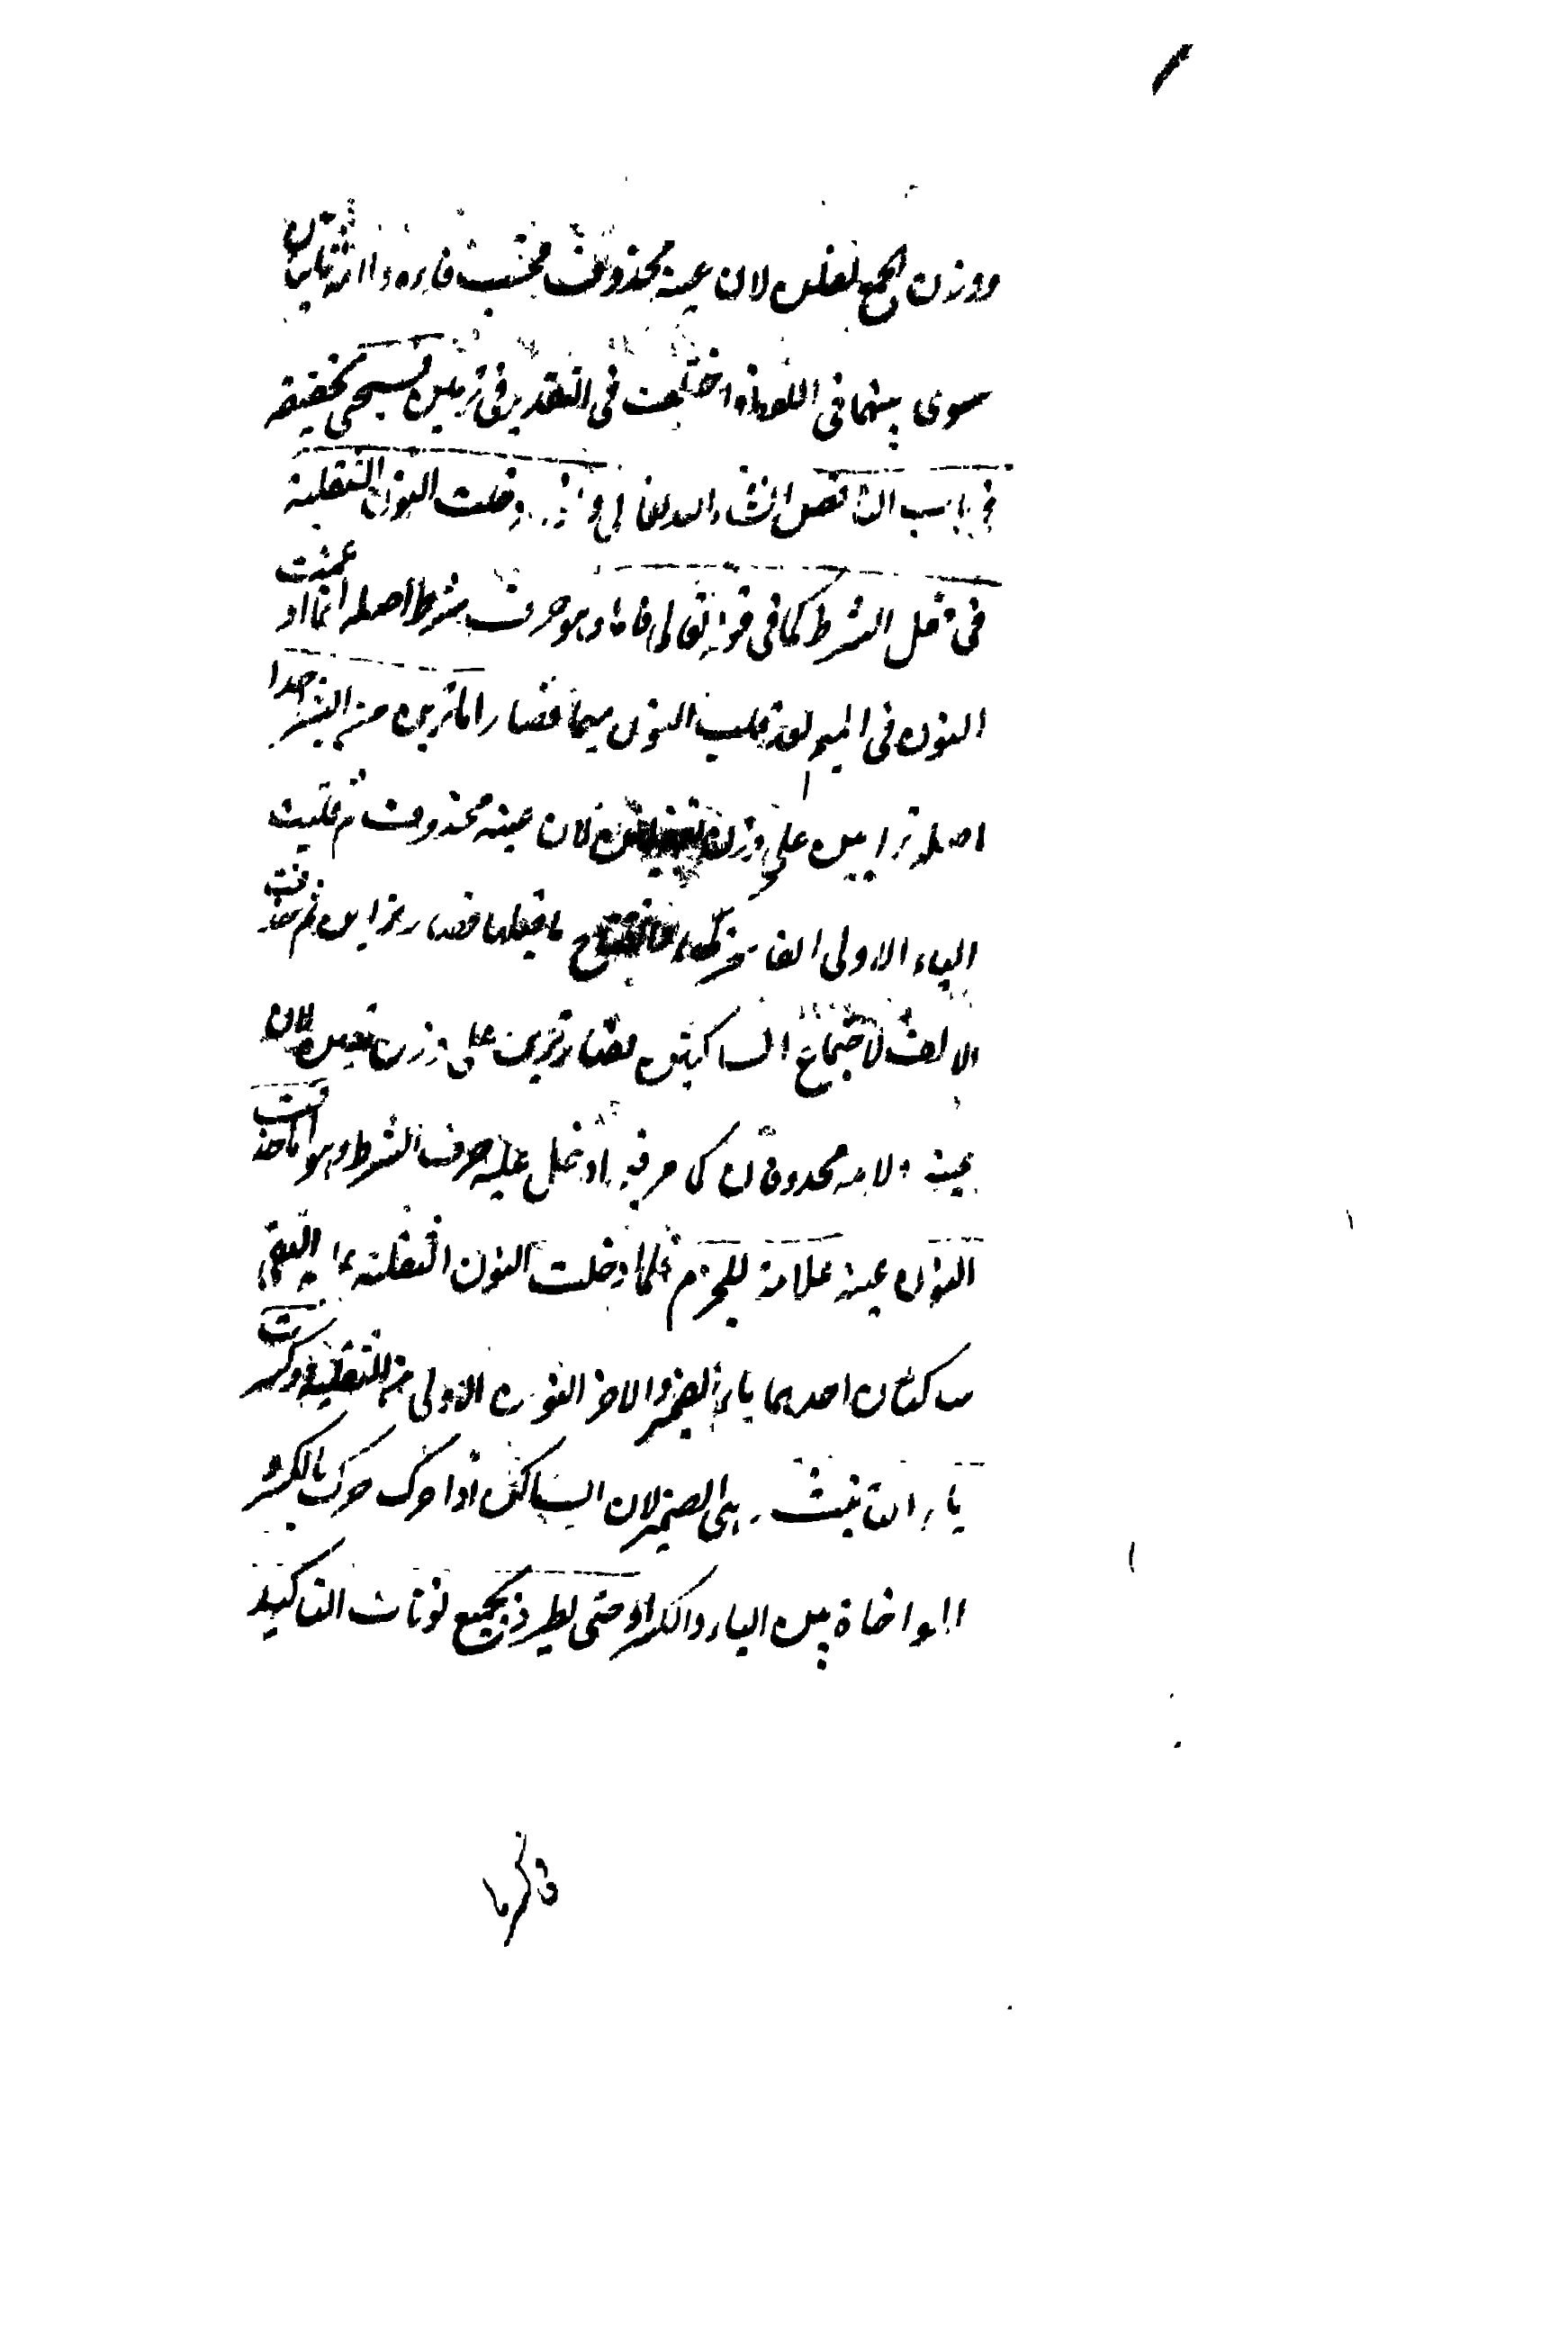 ووزن الجمع تفلن لان عينه محذوف فحينئذ
سوى بينهما في اللفظ واختلفت في التقدير في ترين وسيجئ تحقيقه
في باب الناقص انشاء الله تعالى واذا دخلت النون الثقيلة
في فعل الشرط كما في قوله تعالى فاما وهو حرف شرط اصله ان ما ادغمت
النون في الميم بعد قلب النون ميما فصار اما ترين من البشر احدا
اصله ترايين على وزن لان عينه محذوف ثم قلبت
الياء الاولى الفا لتحركها وانفتاح ما قبلها فصار تراين ثم حذفت
الالف لاجتماع الساكنين فصار ترين على وزن تفين لان
عينه ولامه محذوفان كما مر فيه ادخل عليه حرف الشرط وهو اما حذفت
النون عينه علامة للجزم فلما دخلت النون الثقيلة التقى
ساكنان احديهما ياء الضمير والاخر النون الاولى من الثقيلة وكسرت
ياء التانيث هي الضمير لان الساكن اذا حرك حرك بالكسر
المواخاة بين الياء والكسر او حتى يطرد بجميع نونات التاكيد